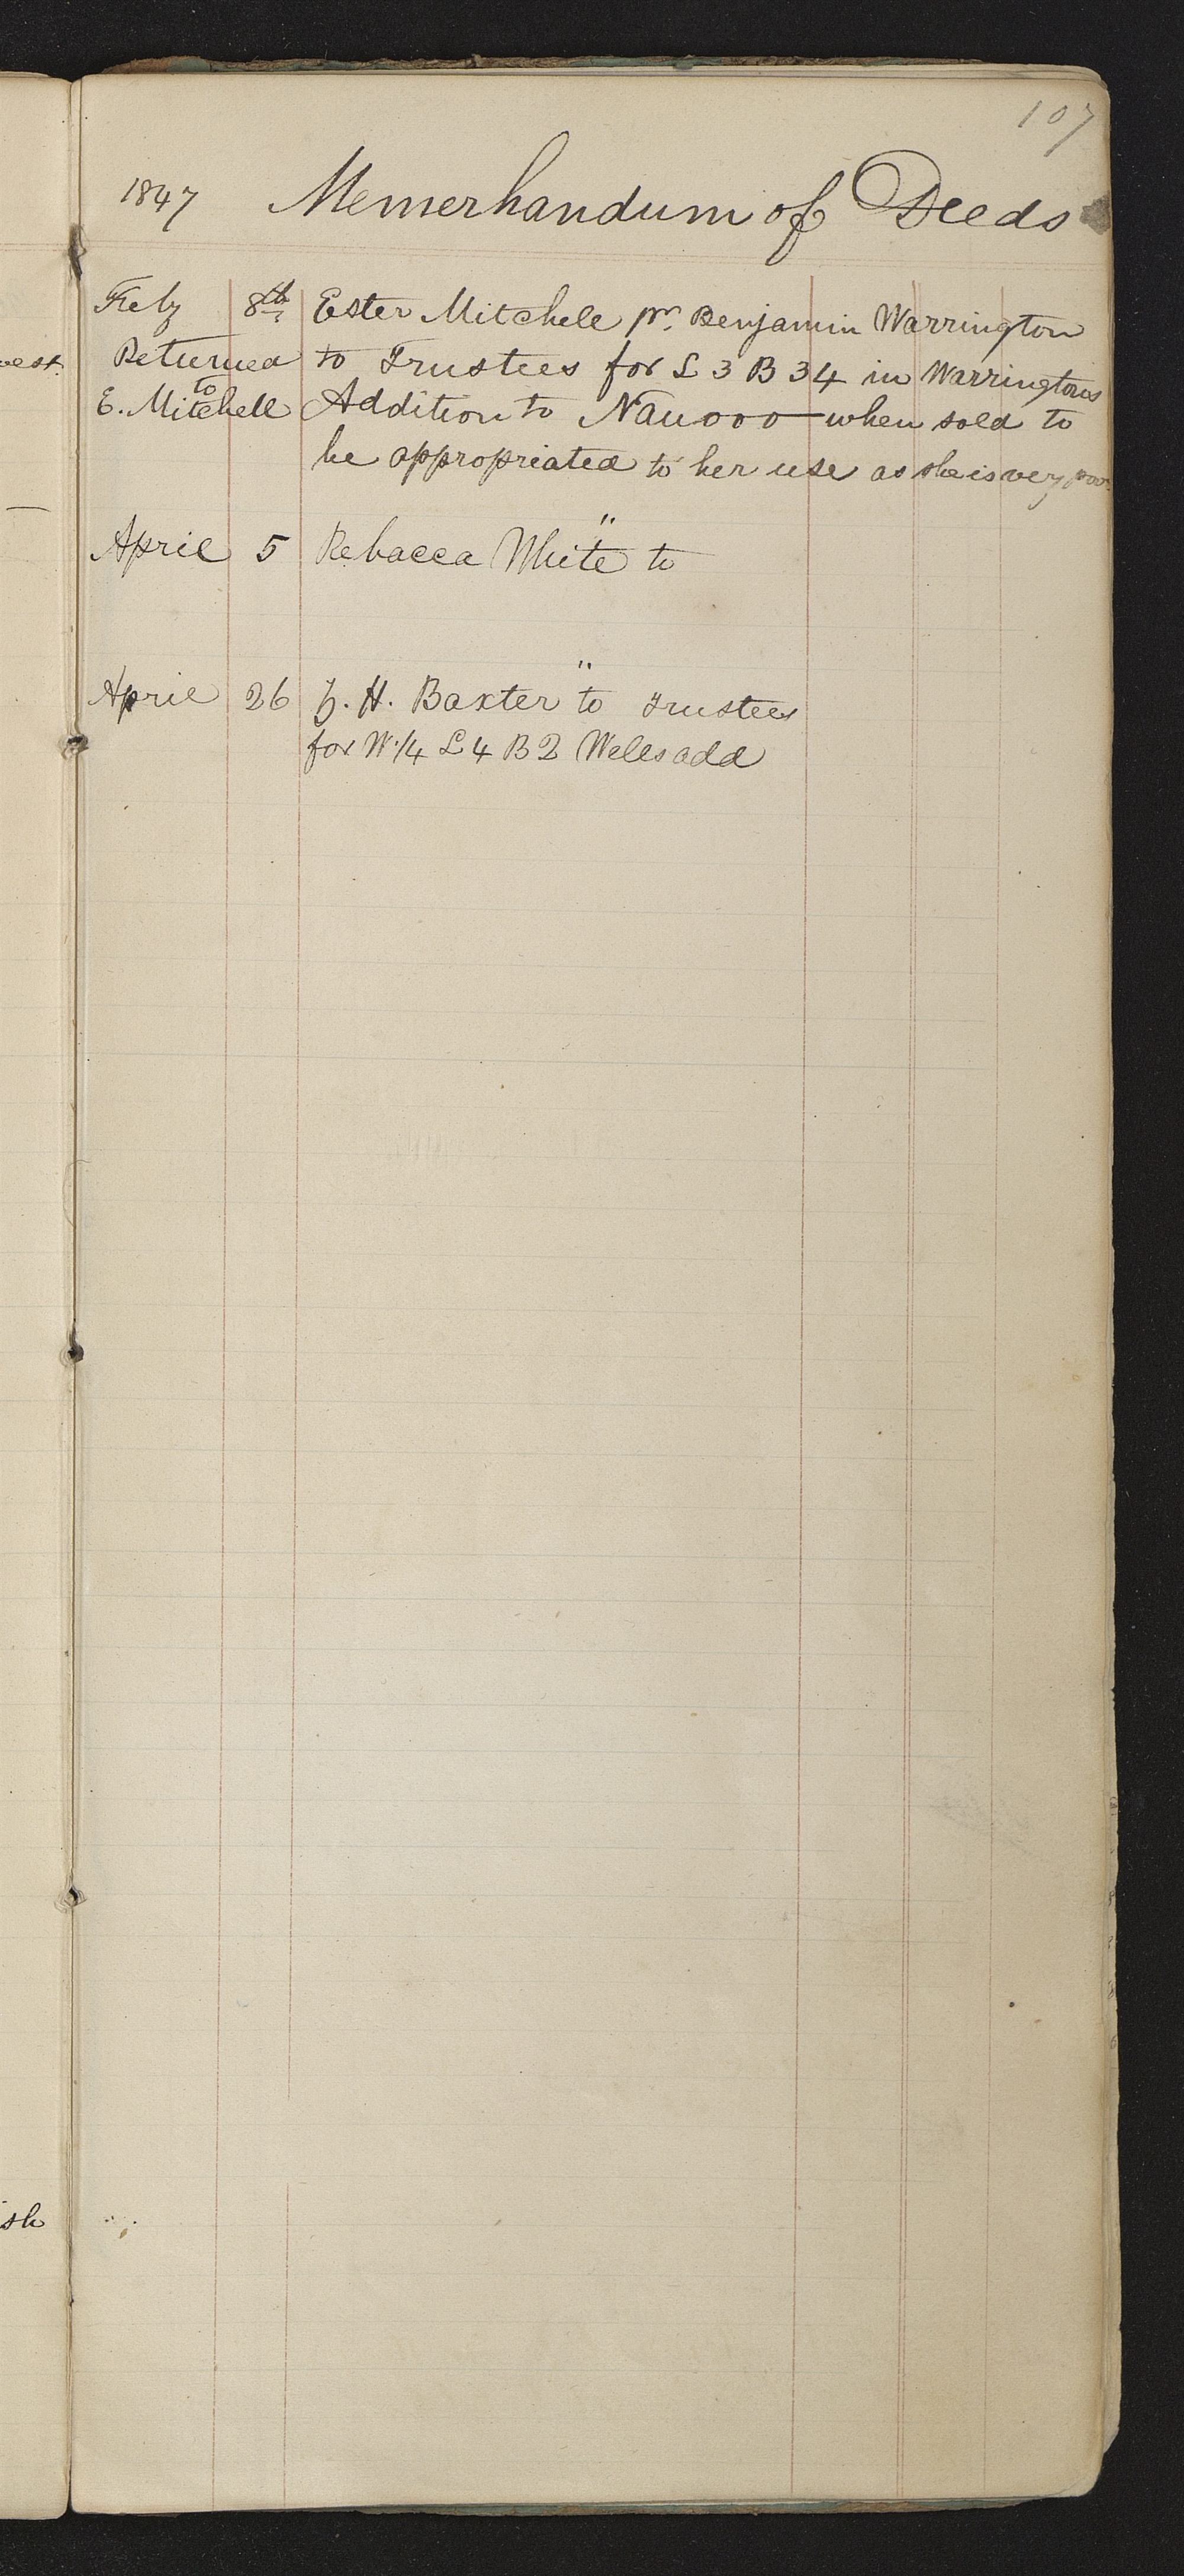 107
1847 Memerhandum of Deeds
Feby 8th Ester Mitchell pr. Benjamin Warrington
Returned to Trustees for L 3 B 34 in Warringtons
to
E. Mitchell Addition to Nauvoo — when sold to
be appropriated to her use as she is very poor
"
April 5 Rebacca White to
"
April 26 H. Baxter to Trustees
for W 1/4 L 4 B 2 Wells add